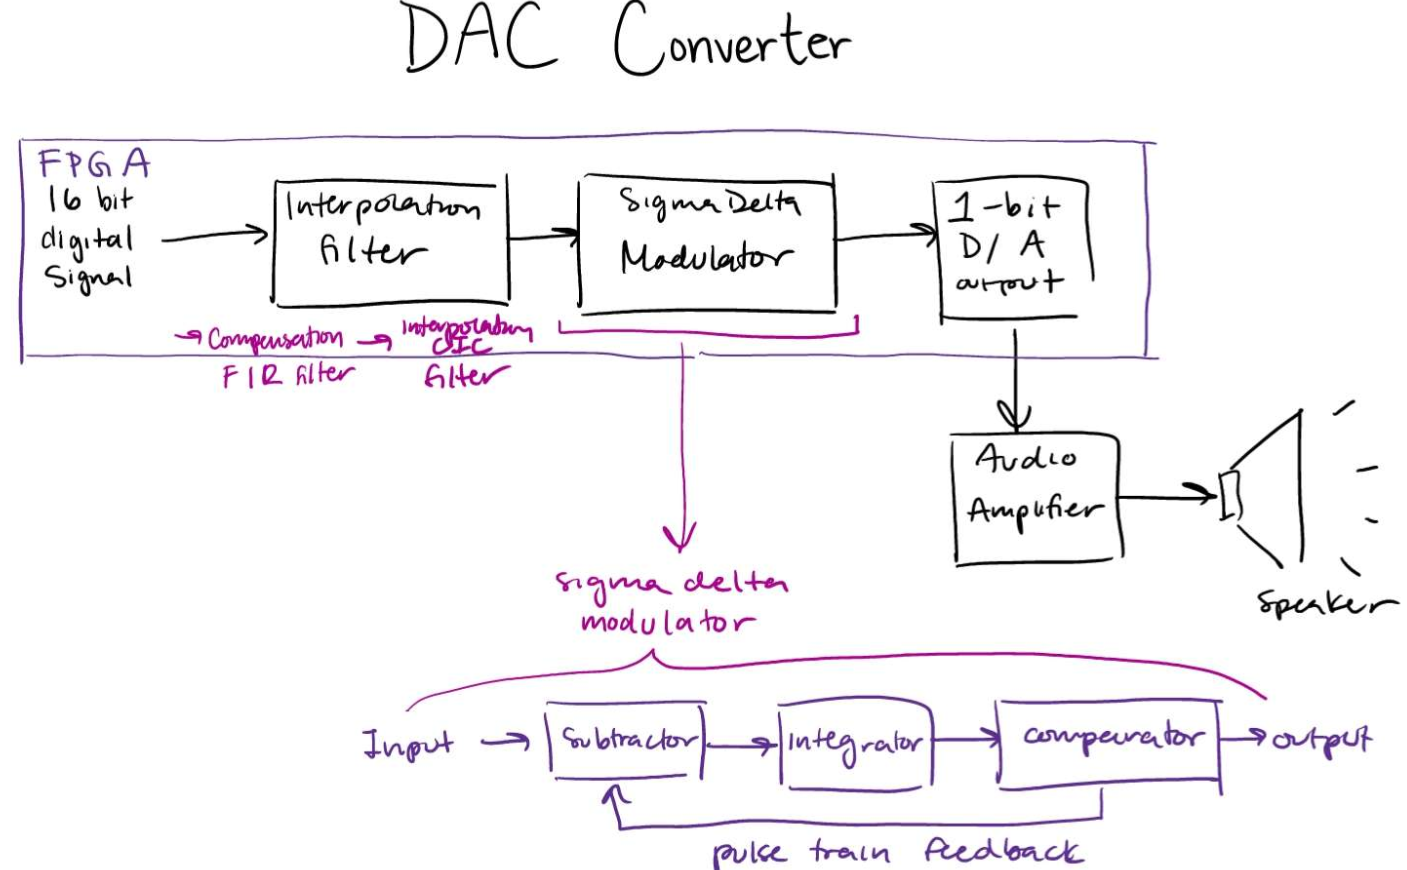 DAC Converter
FPGA
16 bit
digital
Signal
Interpolation
filter
Sigma Delta
Modulator
1-bit
D/A
output
→ Compensation
FIR filter
→ Interpolating
CIC
filter
Audio
Amplifier
Speaker
sigma delta
modulator
Input
Subtractor
integrator
comparator
output
pulse train feedback